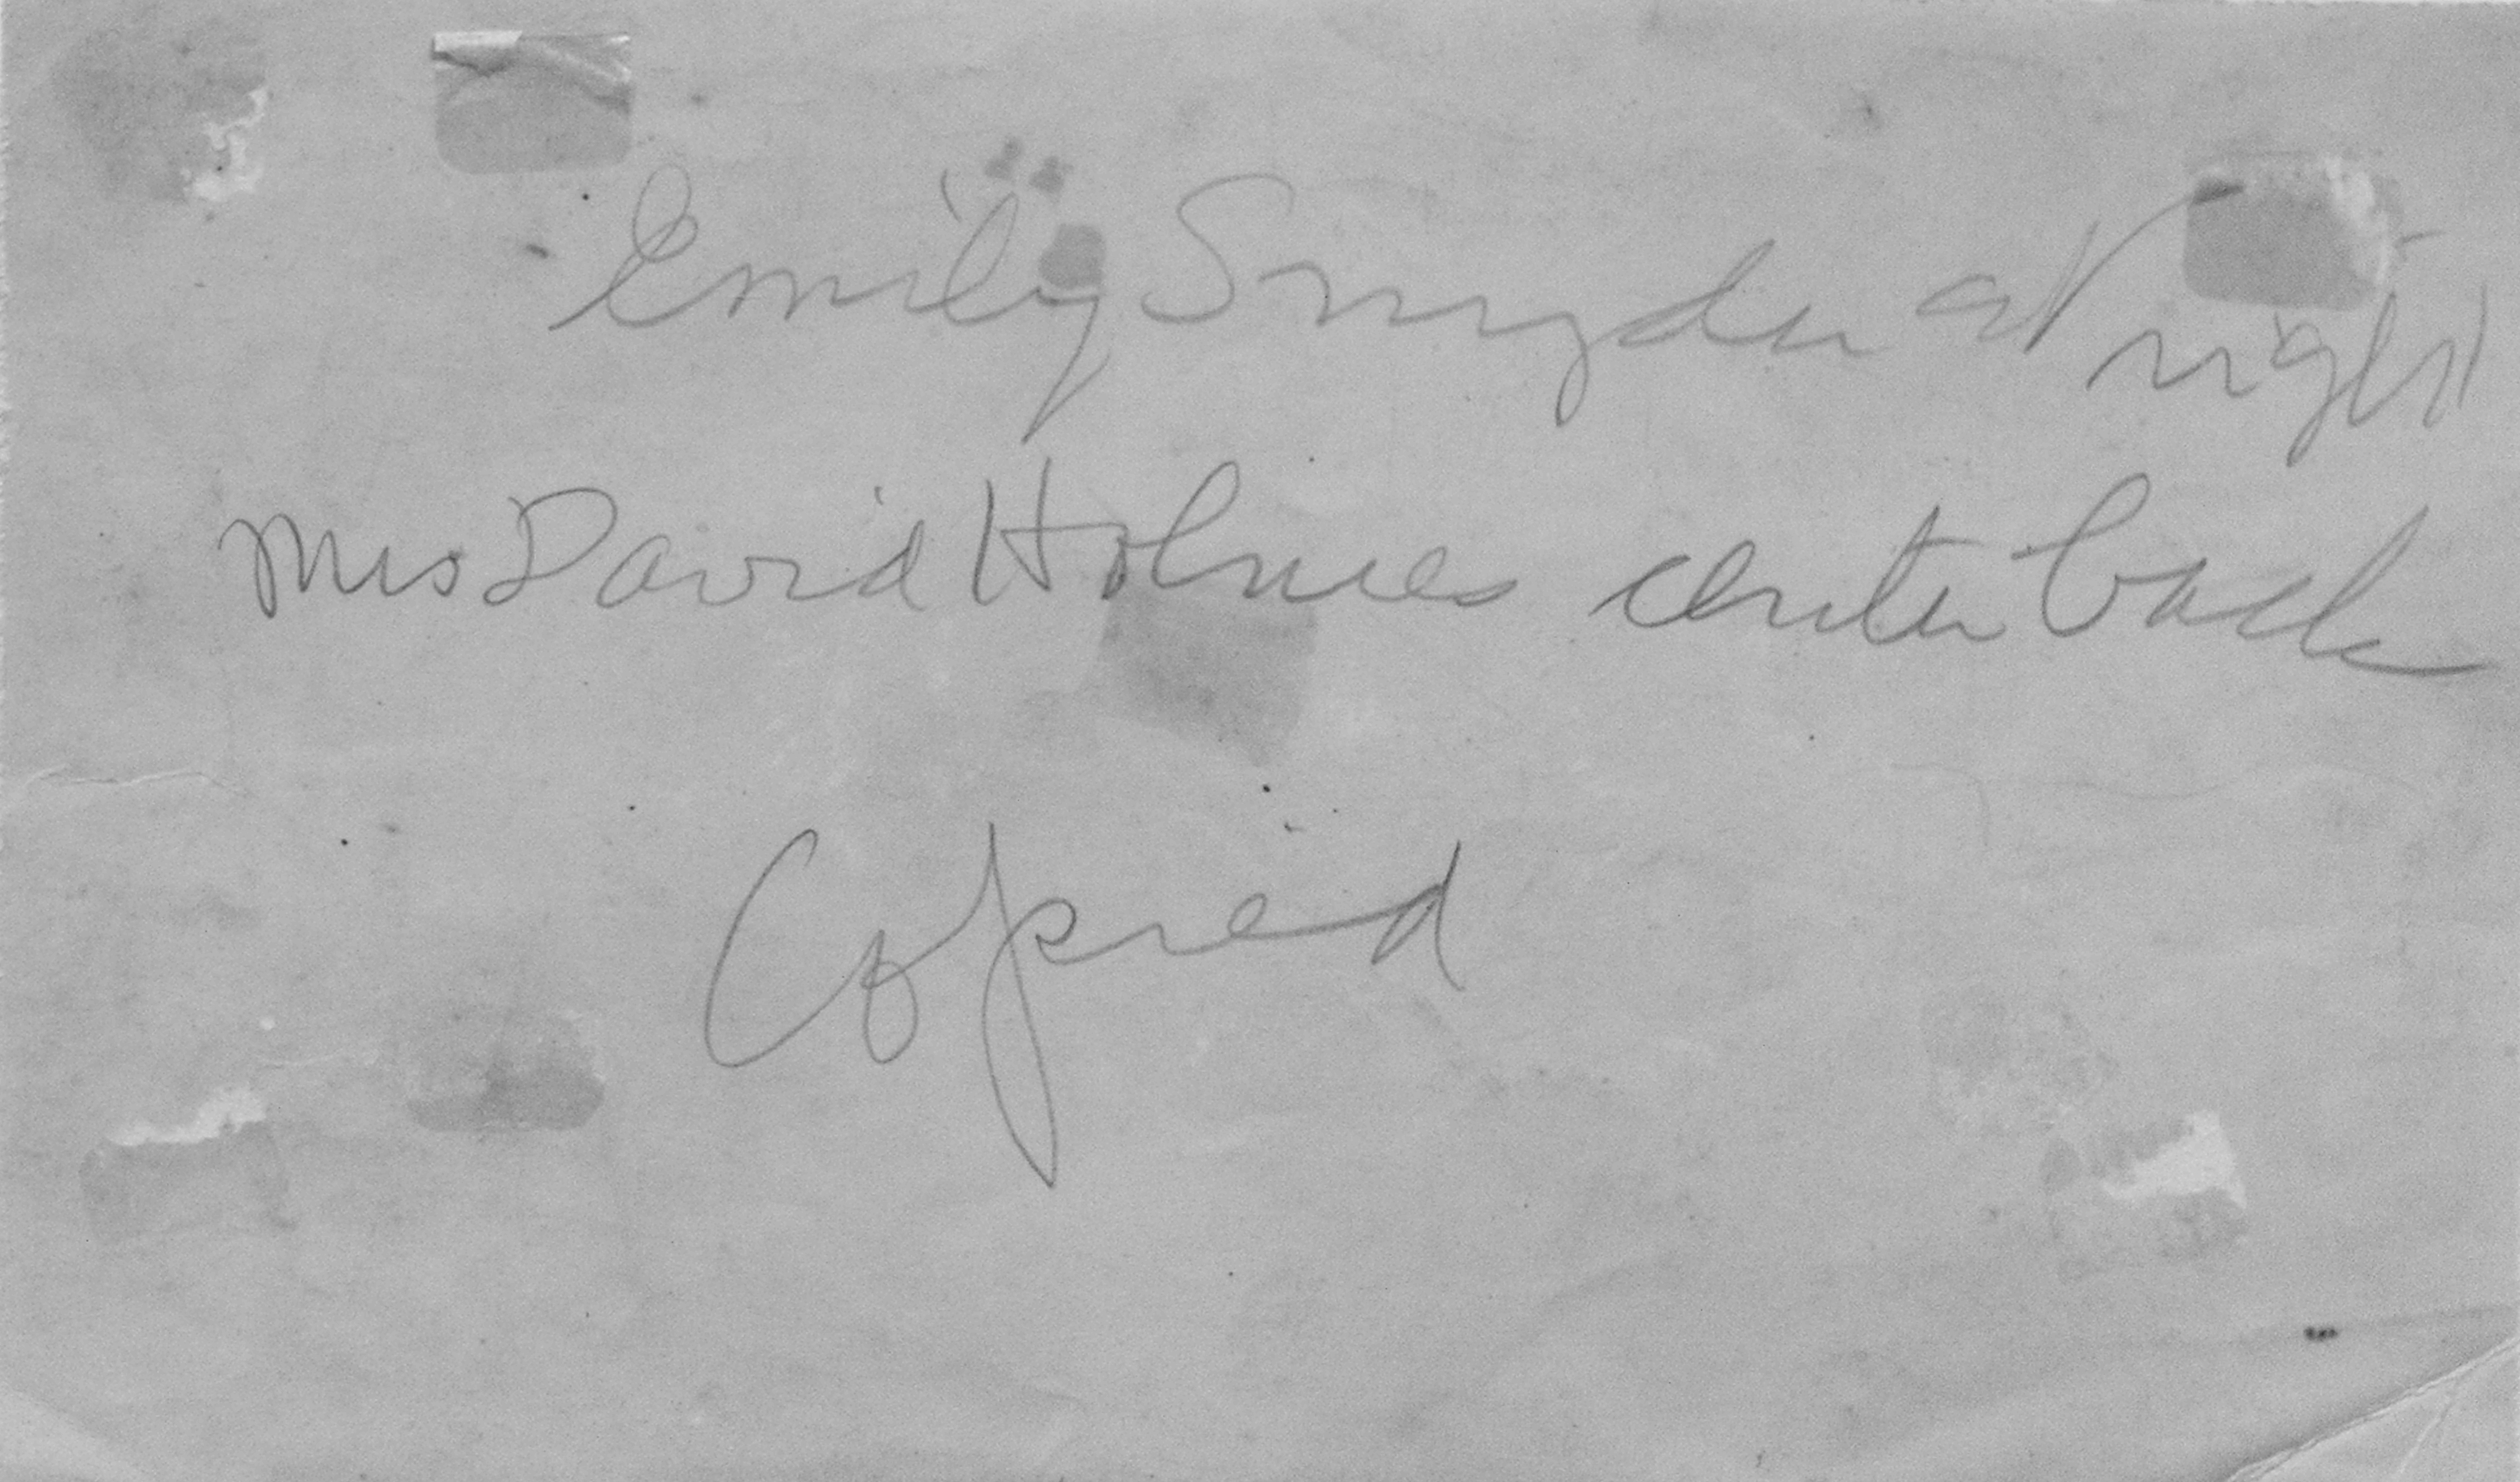 Emily Snyder at right
Mrs David Holmes center back
Copied